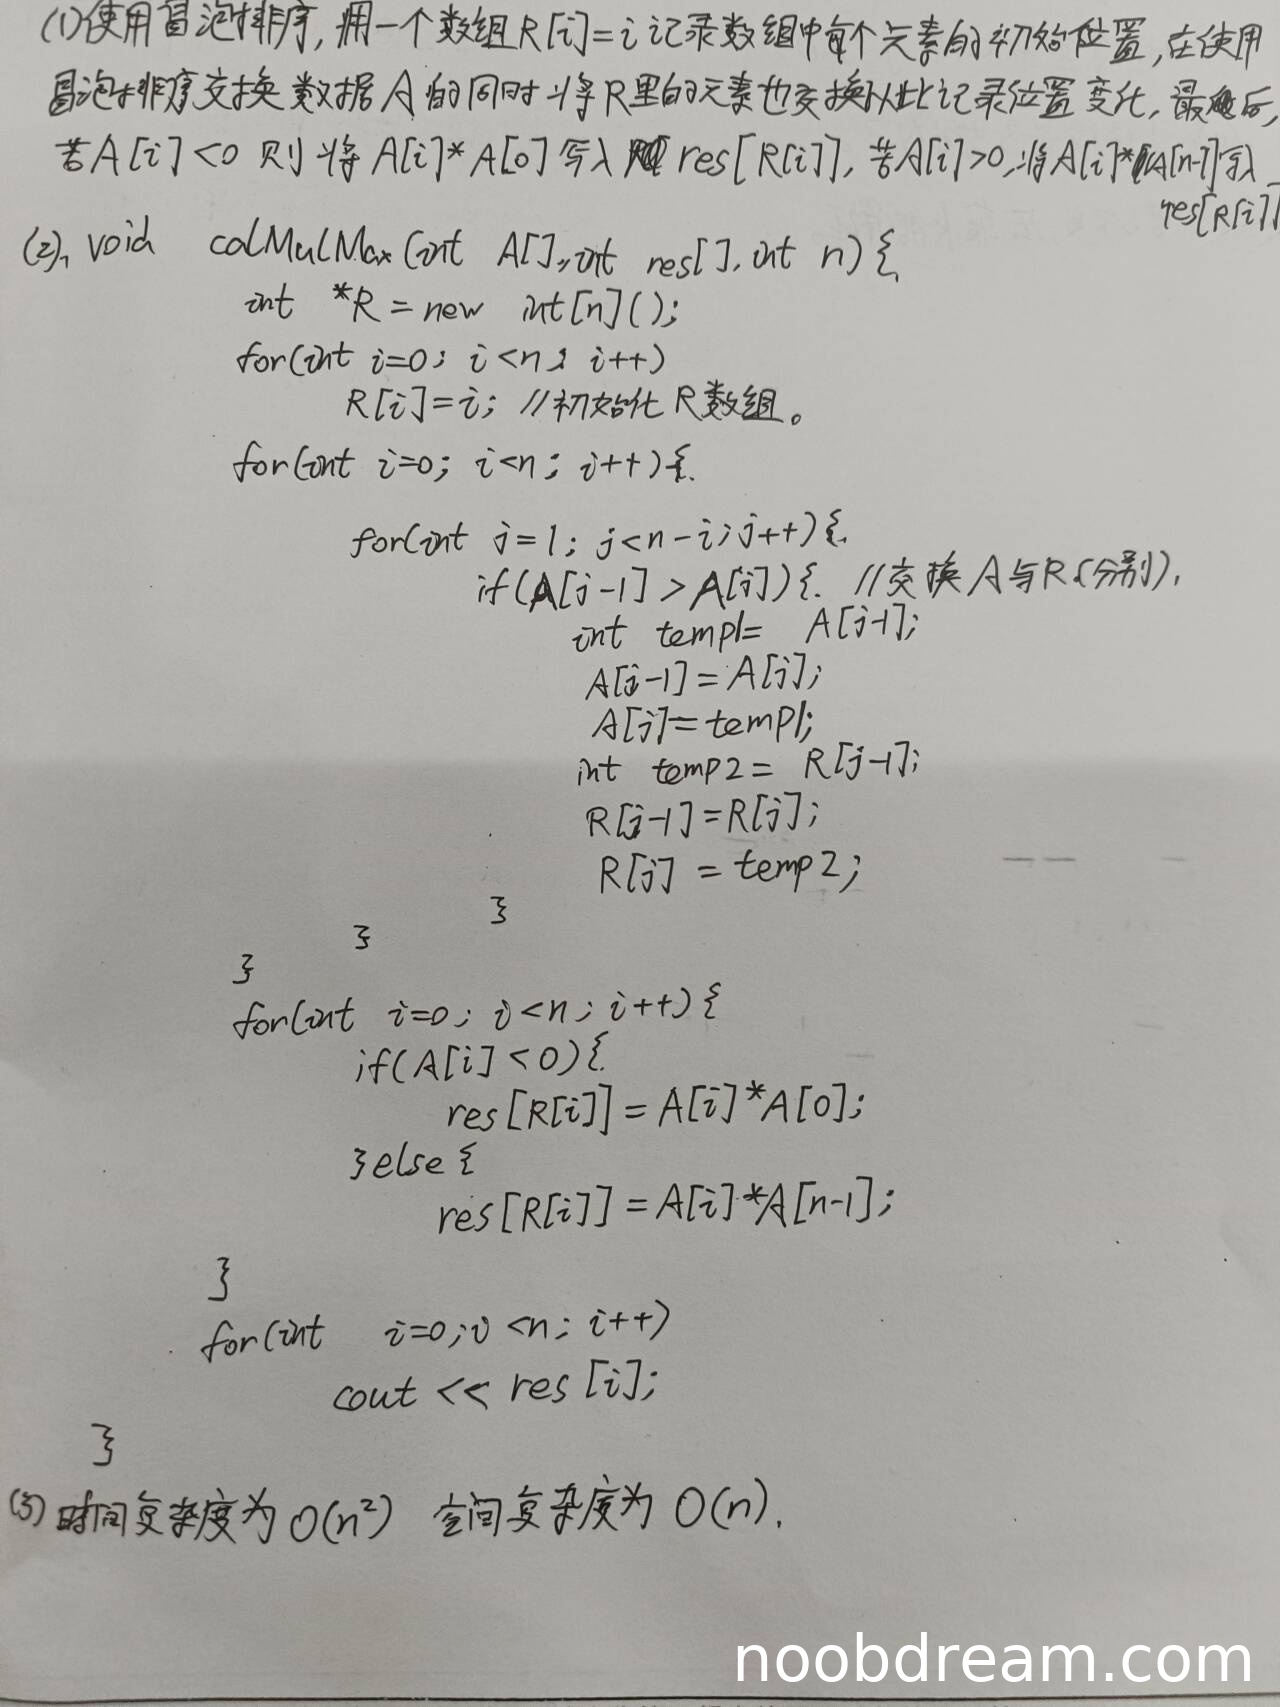 (1)使用冒泡排序,用一个数组R[i]=i记录数组中每个元素的初始位置,在使用
冒泡排序交换数据A的同时将R里的元素也交换以此记录位置变化,最后,
若A[i]<0 则将A[i]*A[0]写入res[R[i]],若A[i]>0,将A[i]*A[n-1]写入
res[R[i]]
(2), void calMulMax(int A[], int res[], int n){
int *R = new int[n]();
for(int i=0; i<n; i++)
R[i]=i; //初始化R数组。
for(int i=0; i<n; i++){
for(int j=1; j<n-i; j++){
if(A[j-1] > A[j]){ //交换A与R(分别),
int temp1= A[j-1];
A[j-1]=A[j];
A[j]=temp1;
int temp2= R[j-1];
R[j-1]=R[j];
R[j] = temp2;
}
}
}
for(int i=0; i<n; i++){
if(A[i]<0){
res[R[i]]=A[i]*A[0];
}else{
res[R[i]]=A[i]*A[n-1];
}
for(int i=0;i<n; i++)
cout << res[i];
}
(3)时间复杂度为O(n²) 空间复杂度为O(n).
noobdream.com